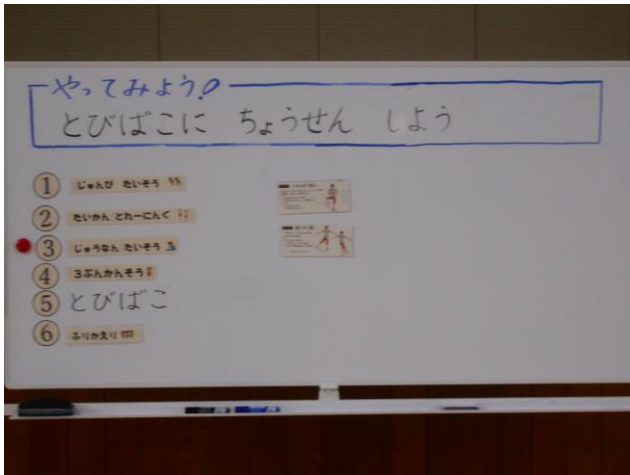 やってみよう!
とびばこに ちょうせん しよう
① じゅんび たいそう
② たいかん とれーにんぐ
③ じゅうなん たいそう
④ 3ぷんかんそう
⑤ とびばこ
⑥ ふりかえり